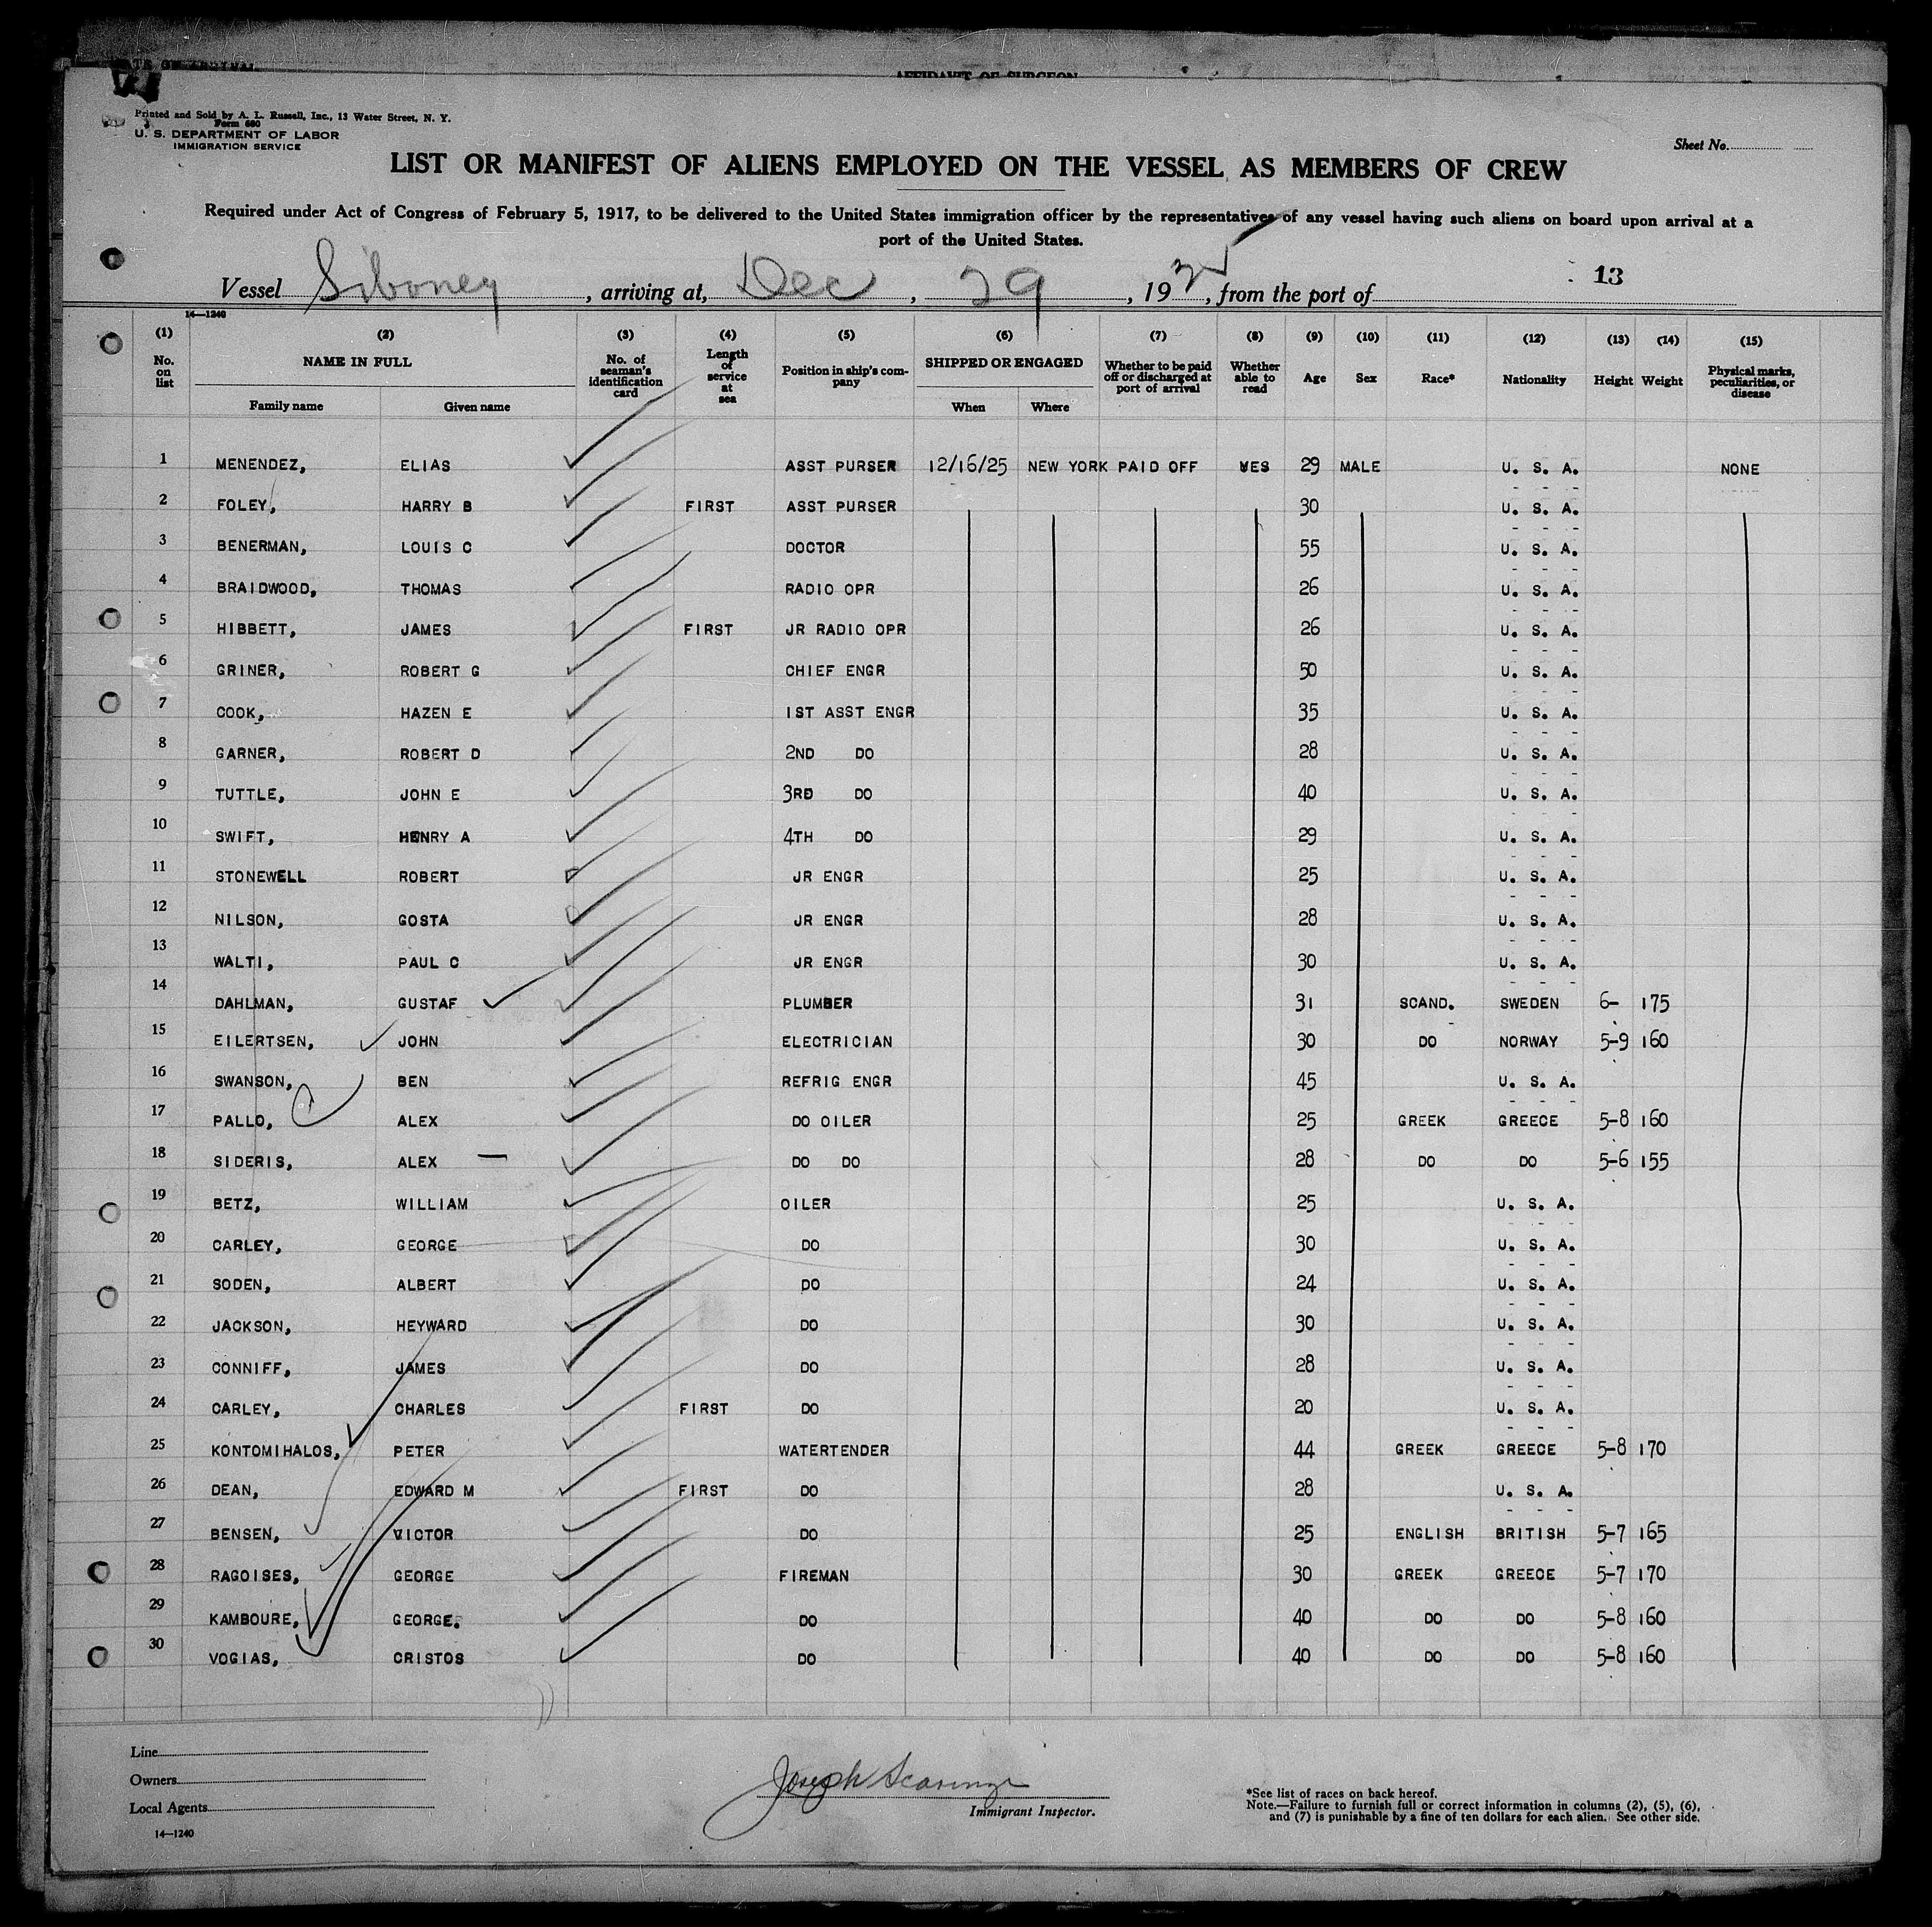 AFFIDAVIT OF SURGEON
Printed and Sold by A. L. Russell, Inc., 13 Water Street, N. Y.
Form 680
U. S. DEPARTMENT OF LABOR
IMMIGRATION SERVICE
Sheet No.
LIST OR MANIFEST OF ALIENS EMPLOYED ON THE VESSEL AS MEMBERS OF CREW
Required under Act of Congress of February 5, 1917, to be delivered to the United States immigration officer by the representatives of any vessel having such aliens on board upon arrival at a
port of the United States.
13
Vessel Siboney, arriving at, Dec, 29, 19, from the port of
14—1240
(1) (2) (3) (4) (5) (6) (7) (8) (9) (10) (11) (12) (13) (14) (15)
No. on list NAME IN FULL Family name Given name No. of seaman's identification card Length of service at sea Position in ship's company SHIPPED OR ENGAGED When Where Whether to be paid off or discharged at port of arrival Whether able to read Age Sex Race* Nationality Height Weight Physical marks, peculiarities, or disease
1 MENENDEZ, ELIAS ASST PURSER 12/16/25 NEW YORK PAID OFF YES 29 MALE U. S. A. NONE
2 FOLEY, HARRY B FIRST ASST PURSER 30 U. S. A.
3 BENERMAN, LOUIS C DOCTOR 55 U. S. A.
4 BRAIDWOOD, THOMAS RADIO OPR 26 U. S. A.
5 HIBBETT, JAMES FIRST JR RADIO OPR 26 U. S. A.
6 GRINER, ROBERT G CHIEF ENGR 50 U. S. A.
7 COOK, HAZEN E 1ST ASST ENGR 35 U. S. A.
8 GARNER, ROBERT D 2ND DO 28 U. S. A.
9 TUTTLE, JOHN E 3RD DO 40 U. S. A.
10 SWIFT, HENRY A 4TH DO 29 U. S. A.
11 STONEWELL ROBERT JR ENGR 25 U. S. A.
12 NILSON, GOSTA JR ENGR 28 U. S. A.
13 WALTI, PAUL C JR ENGR 30 U. S. A.
14 DAHLMAN, GUSTAF PLUMBER 31 SCAND. SWEDEN 6- 175
15 EILERTSEN, JOHN ELECTRICIAN 30 DO NORWAY 5-9 160
16 SWANSON, BEN REFRIG ENGR 45 U. S. A.
17 PALLO, ALEX DO OILER 25 GREEK GREECE 5-8 160
18 SIDERIS, ALEX DO DO 28 DO DO 5-6 155
19 BETZ, WILLIAM OILER 25 U. S. A.
20 CARLEY, GEORGE DO 30 U. S. A.
21 SODEN, ALBERT DO 24 U. S. A.
22 JACKSON, HEYWARD DO 30 U. S. A.
23 CONNIFF, JAMES DO 28 U. S. A.
24 CARLEY, CHARLES FIRST DO 20 U. S. A.
25 KONTOMIHALOS, PETER WATERTENDER 44 GREEK GREECE 5-8 170
26 DEAN, EDWARD M FIRST DO 28 U. S. A.
27 BENSEN, VICTOR DO 25 ENGLISH BRITISH 5-7 165
28 RAGOISES, GEORGE FIREMAN 30 GREEK GREECE 5-7 170
29 KAMBOURE, GEORGE. DO 40 DO DO 5-8 160
30 VOGIAS, CRISTOS DO 40 DO DO 5-8 160
Line
Owners
Local Agents
14—1240
Joseph
Immigrant Inspector.
*See list of races on back hereof.
Note.—Failure to furnish full or correct information in columns (2), (5), (6),
and (7) is punishable by a fine of ten dollars for each alien. See other side.